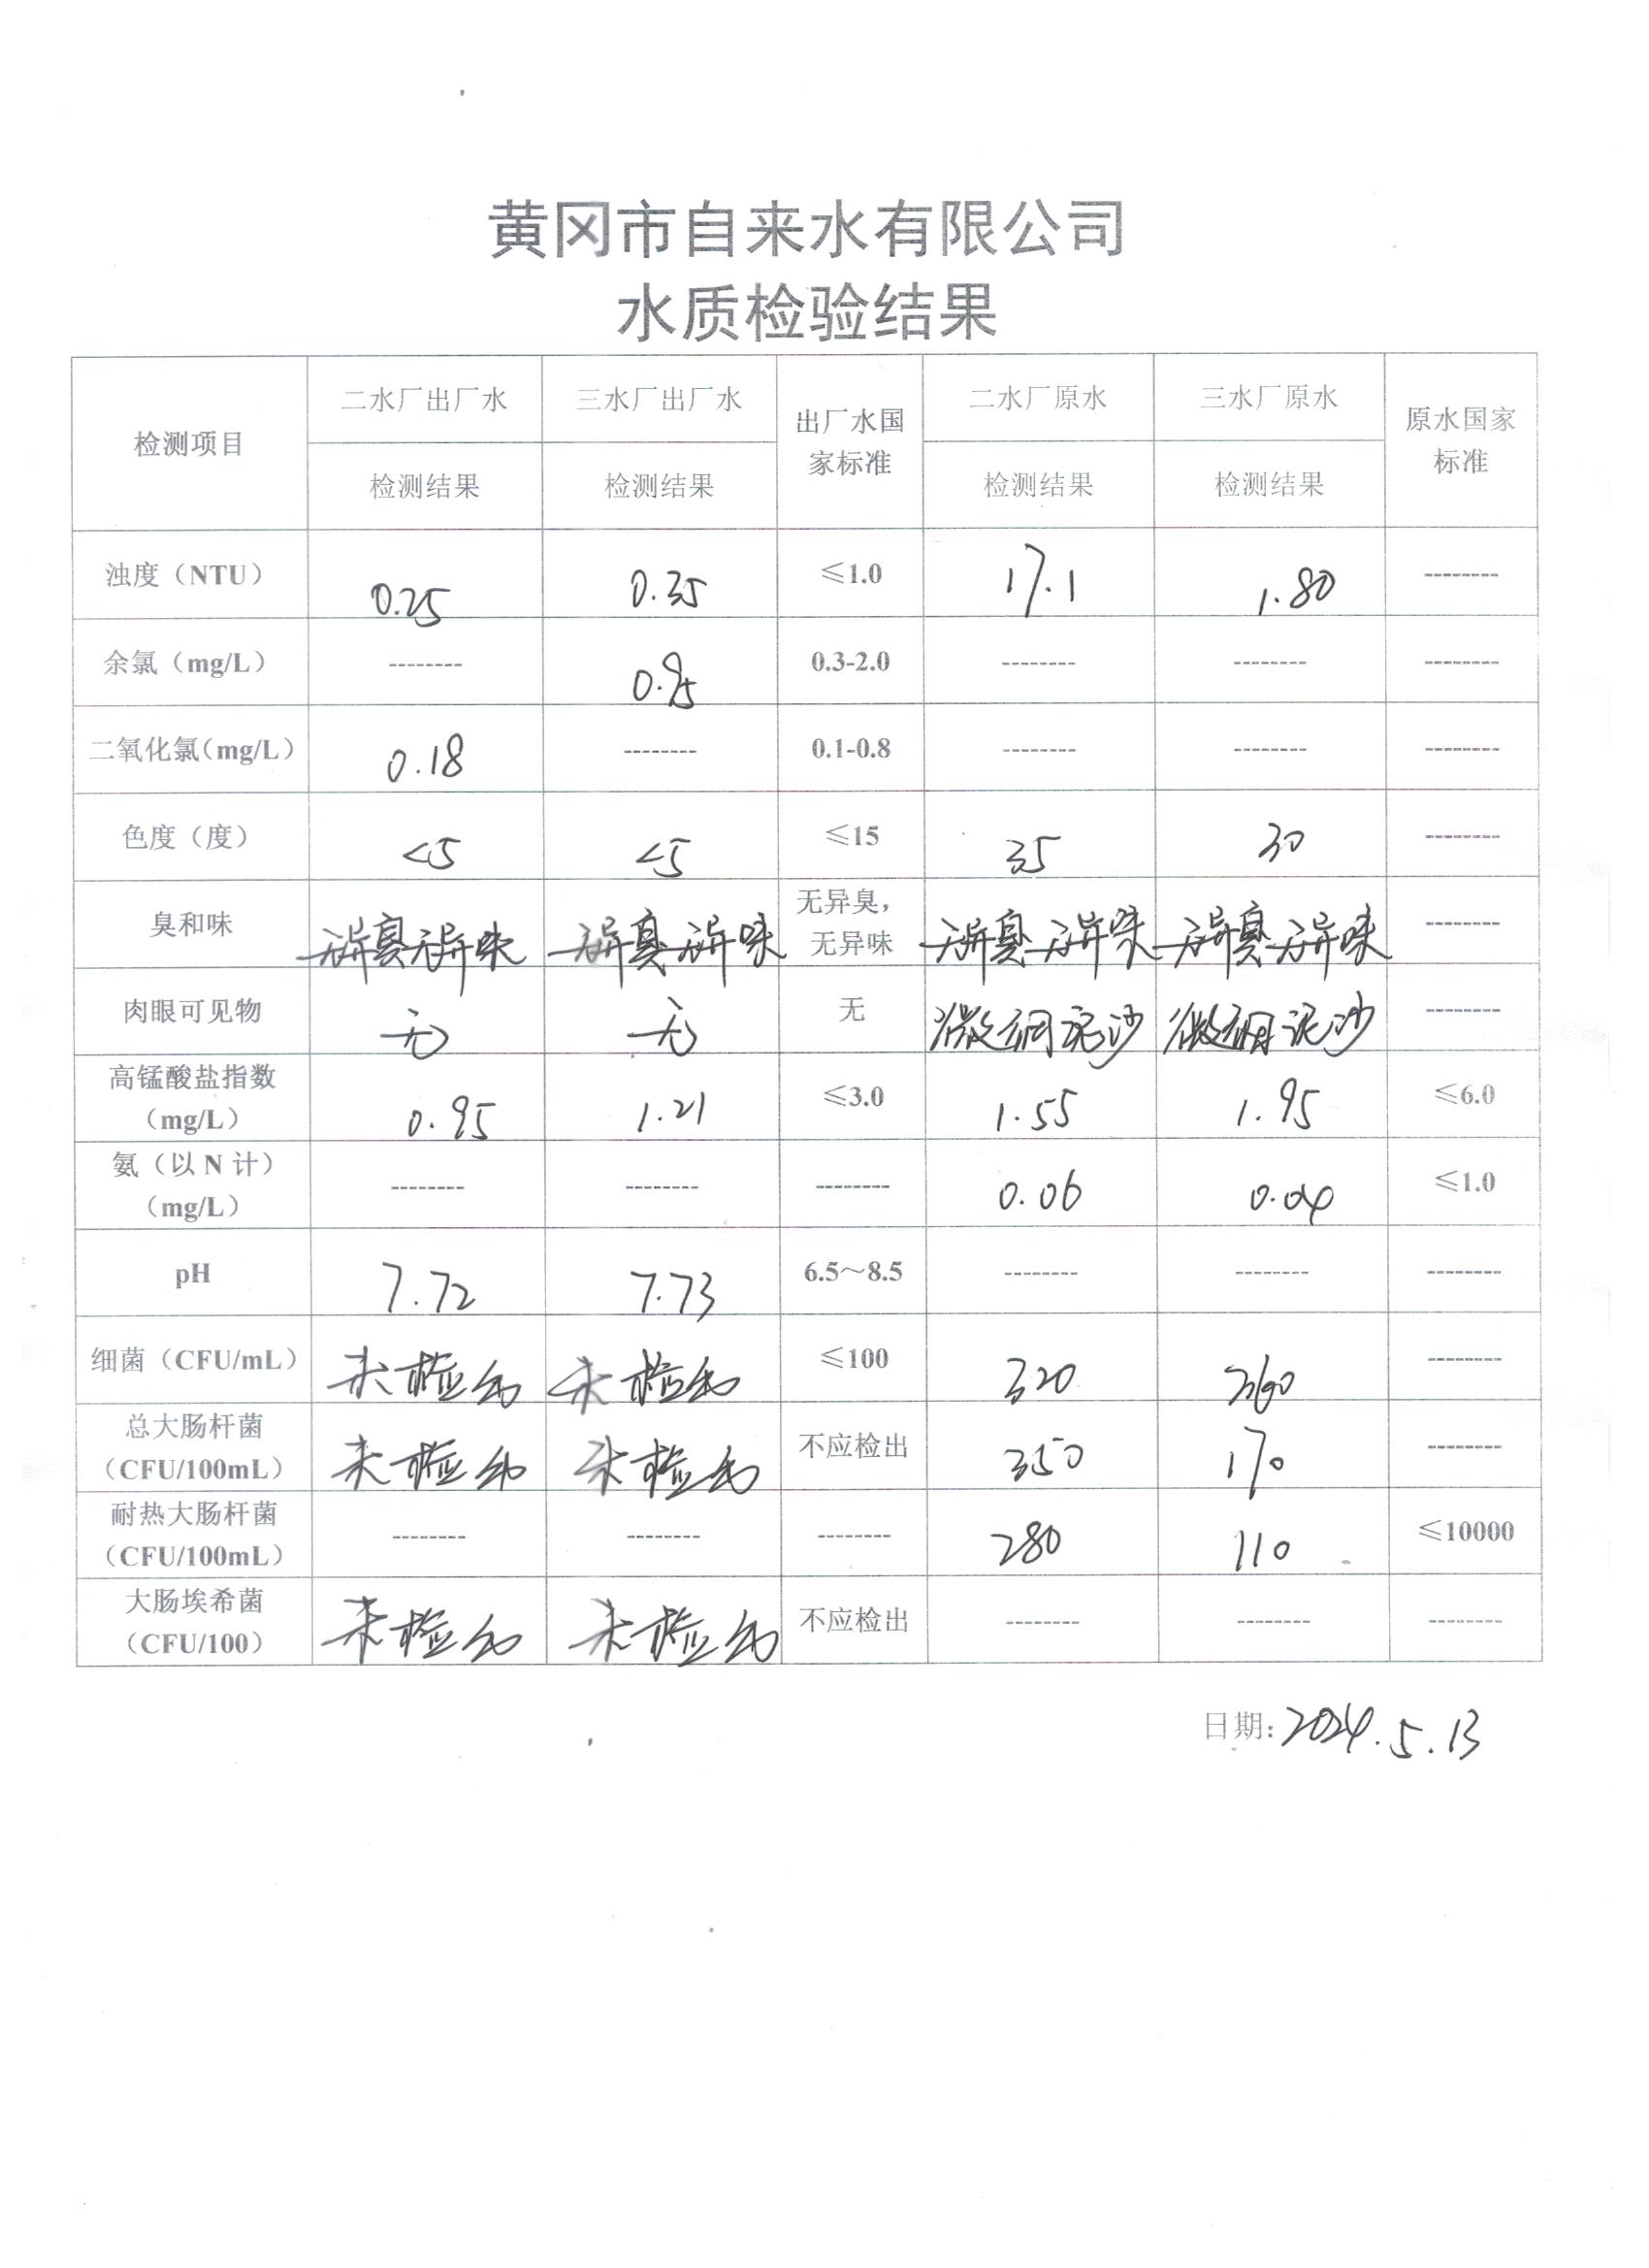 黄冈市自来水有限公司
水质检验结果
检测项目 二水厂出厂水 三水厂出厂水 出厂水国家标准 二水厂原水 三水厂原水 原水国家标准
检测结果 检测结果 检测结果 检测结果
浊度（NTU） 0.25 0.35 ≤1.0 17.1 1.80 --------
余氯（mg/L） -------- 0.95 0.3-2.0 -------- -------- --------
二氧化氯（mg/L） 0.18 -------- 0.1-0.8 -------- -------- --------
色度（度） <5 <5 ≤15 35 30 --------
臭和味 无异臭无异味 无异臭无异味 无异臭，无异味 无异臭无异味 无异臭无异味 --------
肉眼可见物 无 无 无 微细泥沙 微细泥沙 --------
高锰酸盐指数（mg/L） 0.95 1.21 ≤3.0 1.55 1.95 ≤6.0
氨（以N计）（mg/L） -------- -------- -------- 0.06 0.04 ≤1.0
pH 7.72 7.73 6.5～8.5 -------- -------- --------
细菌（CFU/mL） 未检出 未检出 ≤100 320 260 --------
总大肠杆菌（CFU/100mL） 未检出 未检出 不应检出 350 170 --------
耐热大肠杆菌（CFU/100mL） -------- -------- -------- 280 110 ≤10000
大肠埃希菌（CFU/100） 未检出 未检出 不应检出 -------- -------- --------
日期：2024.5.13